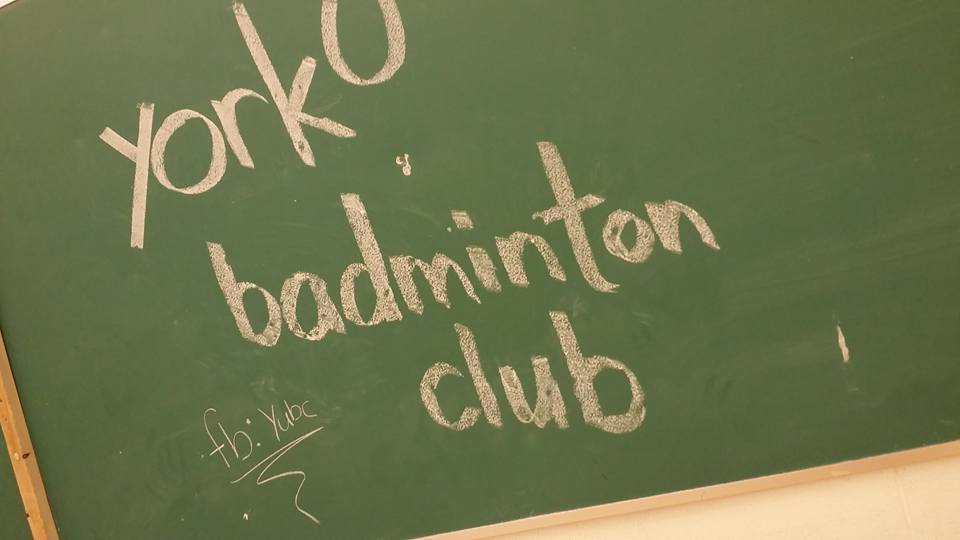 york U
badminton
club
fb: Yubc